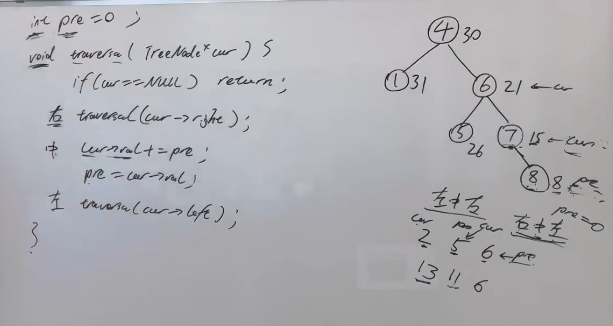 int pre=0;
void traversal(TreeNode* cur) {
if(cur==NULL) return;
右 traversal(cur->right);
中 cur->val += pre;
pre = cur->val;
左 traversal(cur->left);
}
4 30
1 31
6 21 ← cur
5 26
7 15 ← cur
8 8 pre
pre=0
左中右
右中左
cur pre cur
2 5 6 ← pre
13 11 6